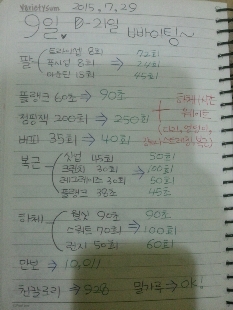 Varietysum 2015.7.29
9일 D-21일 빠이팅~
팔 트라이셉 8회 72회
푸시업 8회 ⇒ 24회
아순틴 15회 45회
플랭크 60초 ⇒ 90초
점핑잭 200회 ⇒ 250회
버피 35회 ⇒ 40회
복근 싯업 45회 50회
크런치 30회 ⇒ 100회
레그레이즈 30회 50회
플랭크 38초 45초
하체 월싯 90초 90초
스쿼트 70회 ⇒ 100회
런지 50회 60회
만보 ⇒ 10,011
천칼로리 ⇒ 528 밀가루 ⇒ OK!